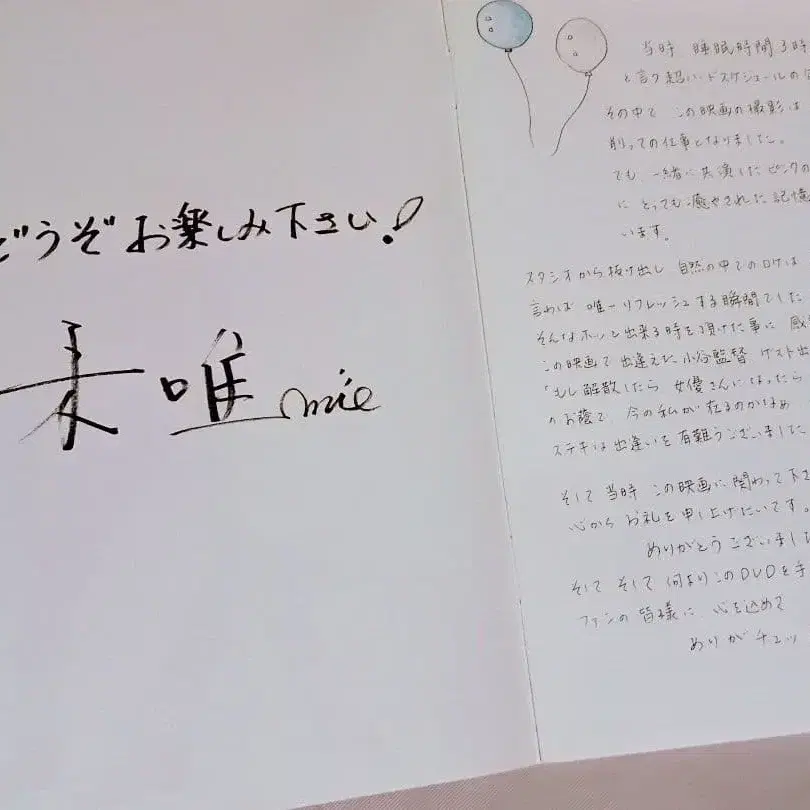 どうぞお楽しみ下さい!
未唯 mie
当時 睡眠時間3時
と言う超ハードスケジュールの
その中で この映画の撮影は
削っての仕事となりました。
でも、一緒に共演したピンクの
に とっても癒やされた記憶
います。
スタジオから抜け出し 自然の中でのロケは
言わば 唯一リフレッシュする瞬間でした
そんなホッと出来る時を頂けた事に 感
この映画で 出逢えた 小谷監督 ゲスト出
「もし解散したら 女優さんになったら
のお蔭で 今の私が在るのかなぁ
ステキな出逢いを有難うございました
そして 当時 この映画に関わって下さ
心から お礼を申し上げたいです。
ありがとうございまし
そして そして 何より このDVDを手
ファンの皆様に 心を込めて
ありがチュッ